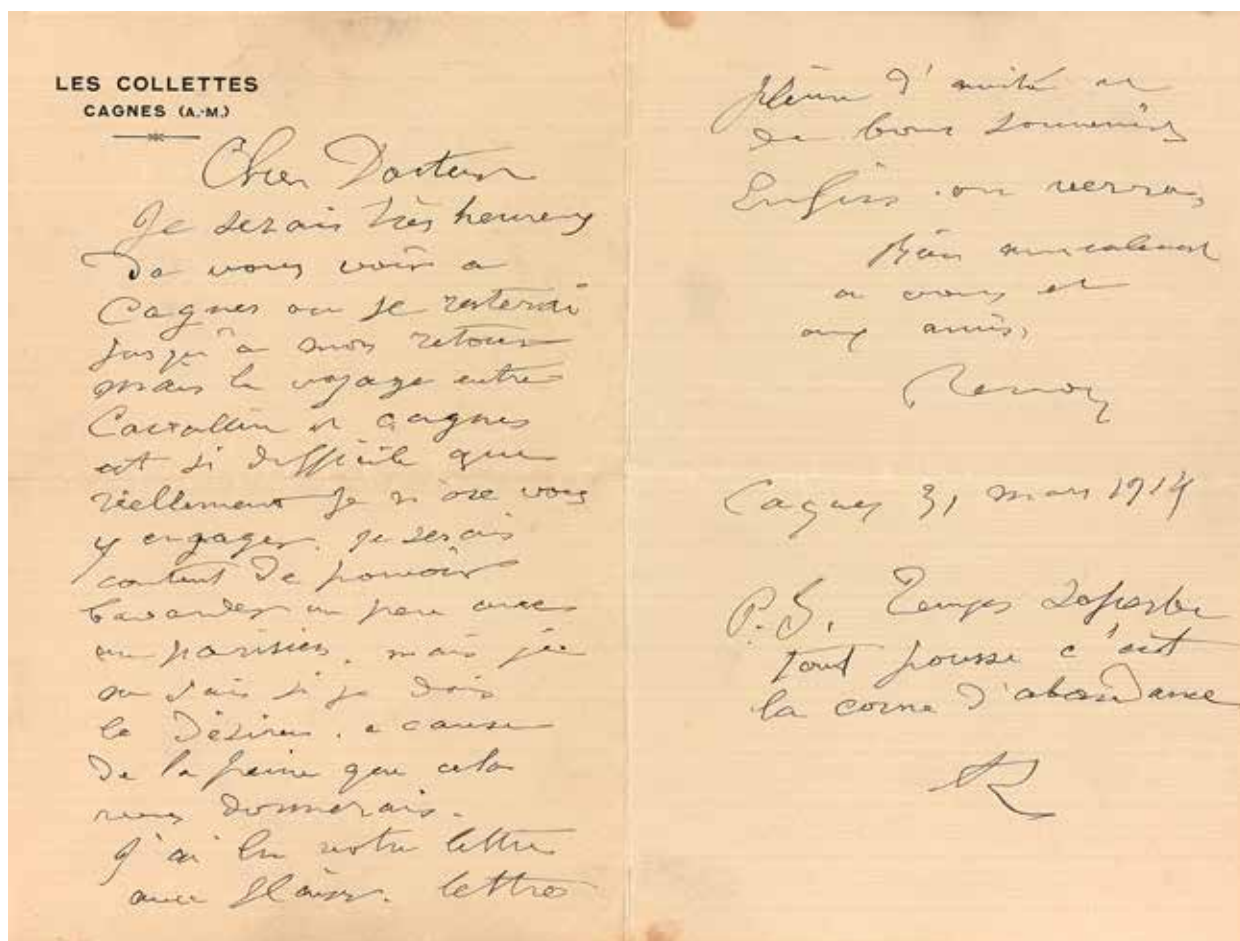 LES COLLETTES
CAGNES (A.-M.)
Cher Docteur
Je serais très heureux
de vous voir a
Cagnes ou je resterai
jusqu'a mon retour
mais le voyage entre
et Cagnes
est si difficile que
réellement je n'ose vous
y engager. je serais
content de pouvoir
bavarder un peu avec
un parisien. mais je
ne sais si je dois
le désirer. a cause
de la peine que cela
vous donnerais.
J'ai lu votre lettre
avec plaisir. lettre
pleine d'amitié et
de bons souvenirs
Enfin on verra,
Bien amicalement
a vous et
aux amis,
Renoir
Cagnes 31 mars 1914
P.S. Temps superbe
tout pousse c'est
la corne d'abondance
R